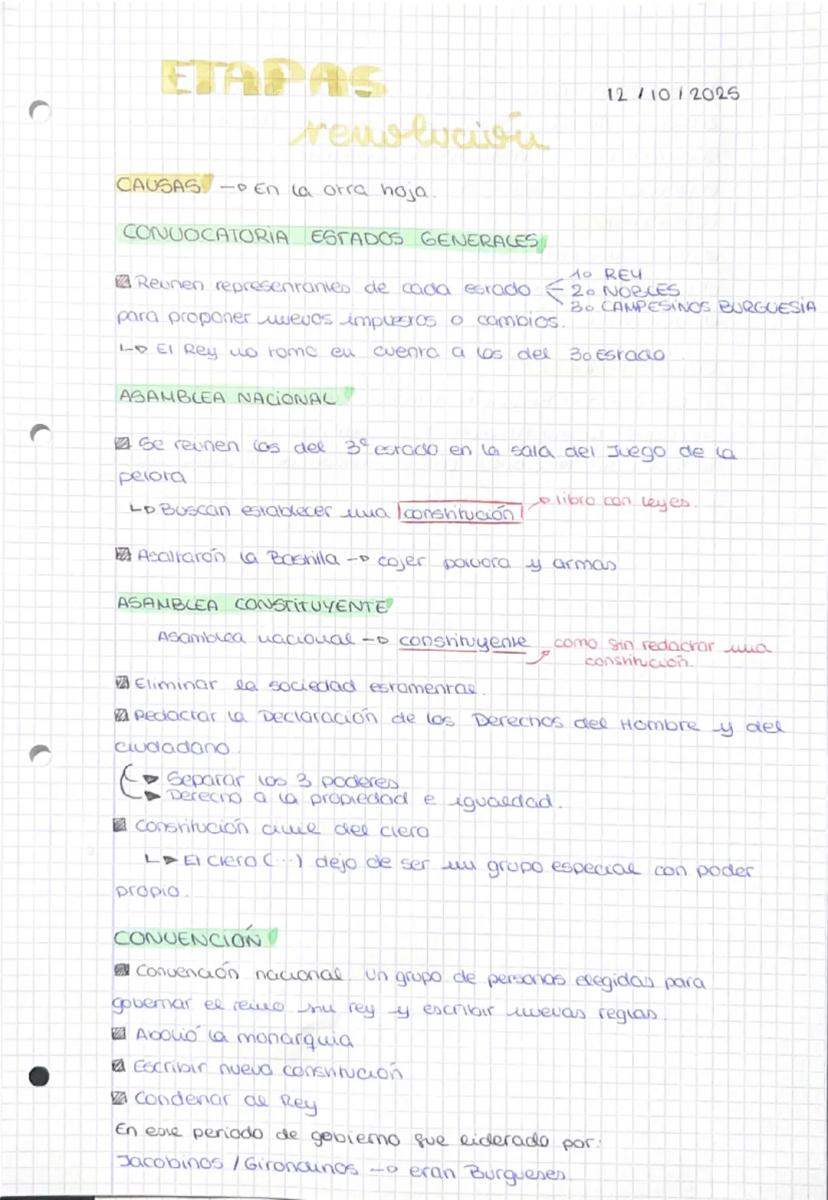 ETAPAS
12/10/2025
revolución
CAUSAS → En la otra hoja.
CONVOCATORIA ESTADOS GENERALES
Reunen representantes de cada estado
1o REY
2o NOBLES
3o CAMPESINOS BURGUESIA
para proponer nuevos impuestos o cambios.
↳ El Rey no toma en cuenta a los del 3o Estado
ASAMBLEA NACIONAL
Se reunen los del 3º estado en la sala del Juego de la
pelota
↳ Buscan establecer una constitución → libro con leyes.
Asaltarón la Bastilla → cojer polvora y armas
ASAMBLEA CONSTITUYENTE
Asamblea nacional → constituyente → como sin redactar una
constitución.
Eliminar la sociedad estamental.
Redactar la Declaración de los Derechos del Hombre y del
ciudadano.
Separar los 3 poderes
Derecho a la propiedad e igualdad.
Constitución civil del clero
↳ El clero (...) dejo de ser un grupo especial con poder
propio.
CONVENCIÓN
Convención nacional un grupo de personas elegidas para
gobernar el reino sin rey y escribir nuevas reglas
Abolió la monarquia
Escribir nueva constitución
Condenar al Rey
En este periodo de gobierno fue liderado por:
Jacobinos / Girondinos → eran Burgueses